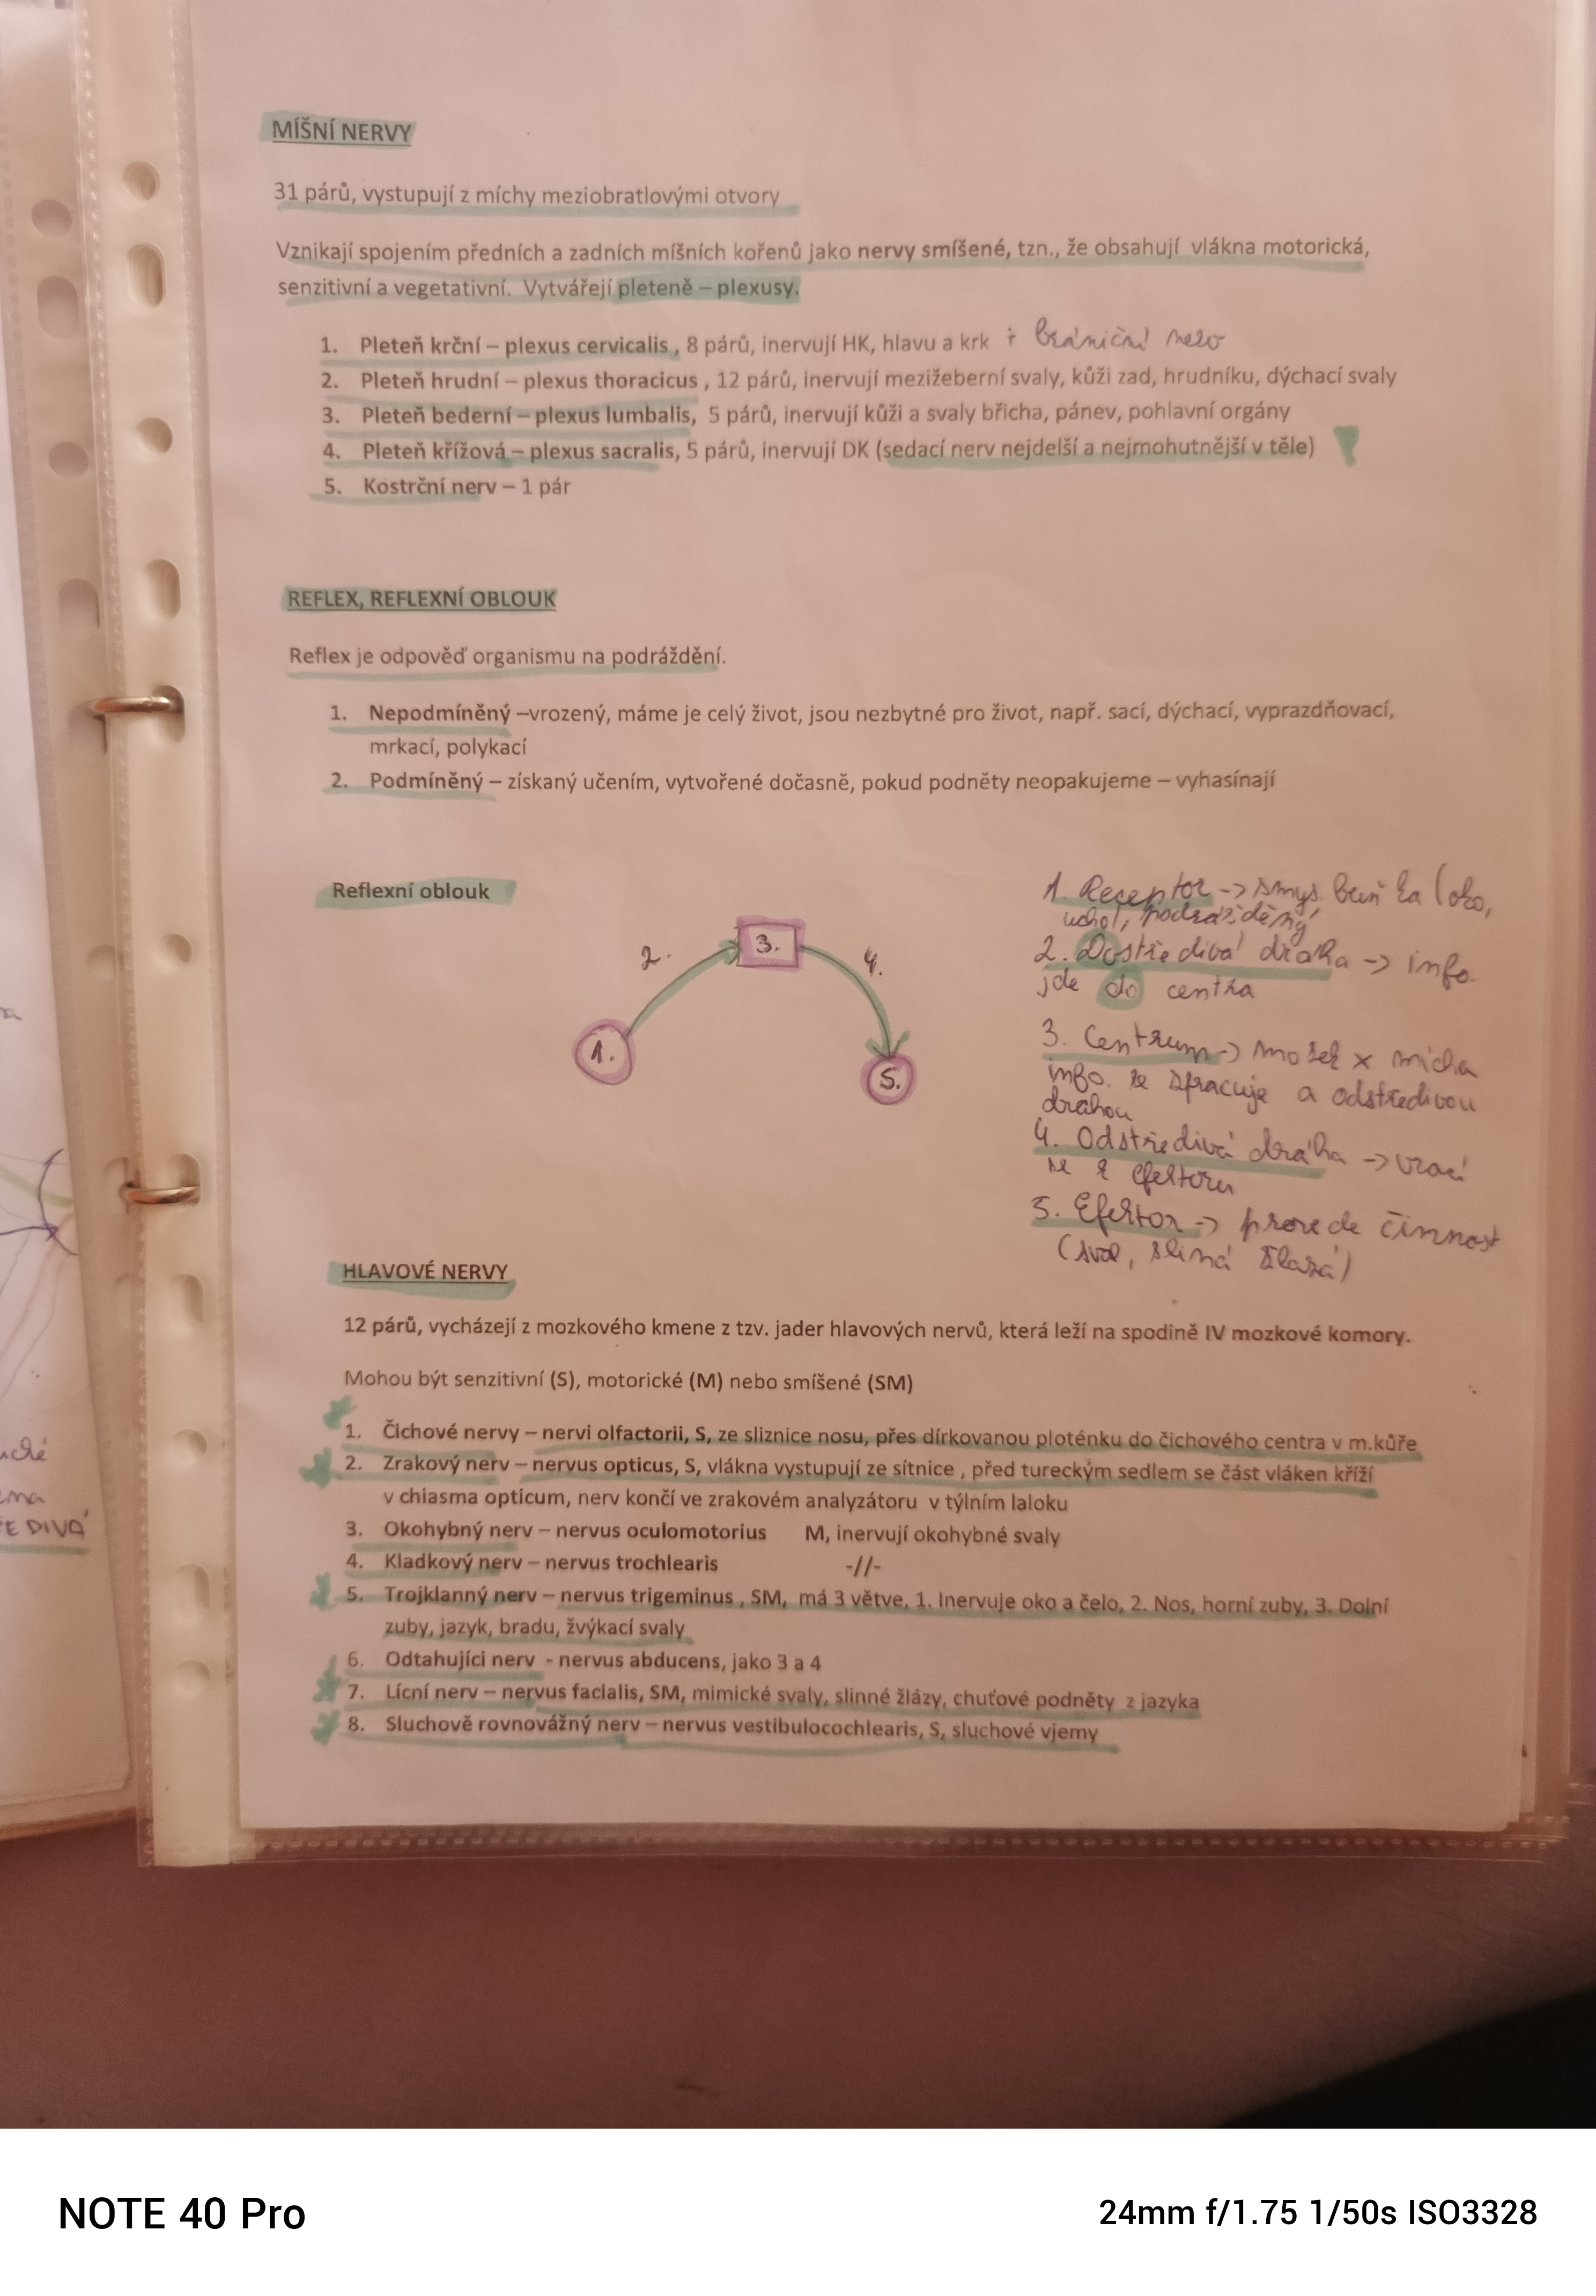 MÍŠNÍ NERVY
31 párů, vystupují z míchy meziobratlovými otvory
Vznikají spojením předních a zadních míšních kořenů jako nervy smíšené, tzn., že obsahují vlákna motorická,
senzitivní a vegetativní. Vytvářejí pleteně – plexusy.
1. Pleteň krční – plexus cervicalis , 8 párů, inervují HK, hlavu a krk + brániční nerv
2. Pleteň hrudní – plexus thoracicus , 12 párů, inervují mezižeberní svaly, kůži zad, hrudníku, dýchací svaly
3. Pleteň bederní – plexus lumbalis, 5 párů, inervují kůži a svaly břicha, pánev, pohlavní orgány
4. Pleteň křížová – plexus sacralis, 5 párů, inervují DK (sedací nerv nejdelší a nejmohutnější v těle)
5. Kostrční nerv – 1 pár
REFLEX, REFLEXNÍ OBLOUK
Reflex je odpověď organismu na podráždění.
1. Nepodmíněný –vrozený, máme je celý život, jsou nezbytné pro život, např. sací, dýchací, vyprazdňovací,
mrkací, polykací
2. Podmíněný – získaný učením, vytvořené dočasně, pokud podněty neopakujeme – vyhasínají
Reflexní oblouk
1.
2.
3.
4.
5.
1. Receptor -> smys. buňka (oko,
ucho), podráždění
2. Dostředivá dráha -> info.
jde do centra
3. Centrum -> mozek x mícha
info. se zpracuje a odstředivou
dráhou
4. Odstředivá dráha -> vrací
se k efektoru
5. Efektor -> provede činnost
(sval, slinná žláza)
HLAVOVÉ NERVY
12 párů, vycházejí z mozkového kmene z tzv. jader hlavových nervů, která leží na spodině IV mozkové komory.
Mohou být senzitivní (S), motorické (M) nebo smíšené (SM)
1. Čichové nervy – nervi olfactorii, S, ze sliznice nosu, přes dírkovanou ploténku do čichového centra v m.kůře
2. Zrakový nerv – nervus opticus, S, vlákna vystupují ze sítnice , před tureckým sedlem se část vláken kříží
v chiasma opticum, nerv končí ve zrakovém analyzátoru v týlním laloku
3. Okohybný nerv – nervus oculomotorius M, inervují okohybné svaly
4. Kladkový nerv – nervus trochlearis -//-
5. Trojklanný nerv – nervus trigeminus , SM, má 3 větve, 1. Inervuje oko a čelo, 2. Nos, horní zuby, 3. Dolní
zuby, jazyk, bradu, žvýkací svaly
6. Odtahující nerv - nervus abducens, jako 3 a 4
7. Lícní nerv – nervus facialis, SM, mimické svaly, slinné žlázy, chuťové podněty z jazyka
8. Sluchově rovnovážný nerv – nervus vestibulocochlearis, S, sluchové vjemy
NOTE 40 Pro
24mm f/1.75 1/50s ISO3328